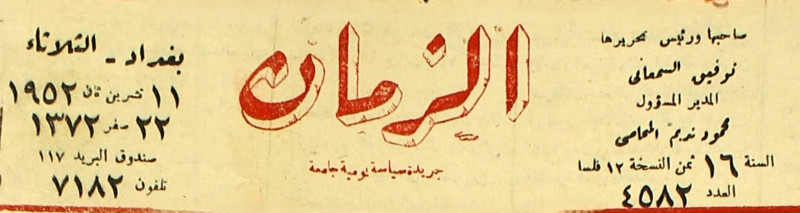 صاحبها ورئيس تحريرها
توفيق السمعاني
المدير المسؤول
محمود نديم المحامي
السنة ١٦ ثمن النسخة ١٢ فلسا
العدد ٤٥٨٢
الزمان
جريدة سياسة يومية جامعة
بغداد - الثلاثاء
١١ تشرين ثان ١٩٥٢
٢٢ صفر ١٣٧٢
صندوق البريد ١١٧
تلفون ٧١٨٢